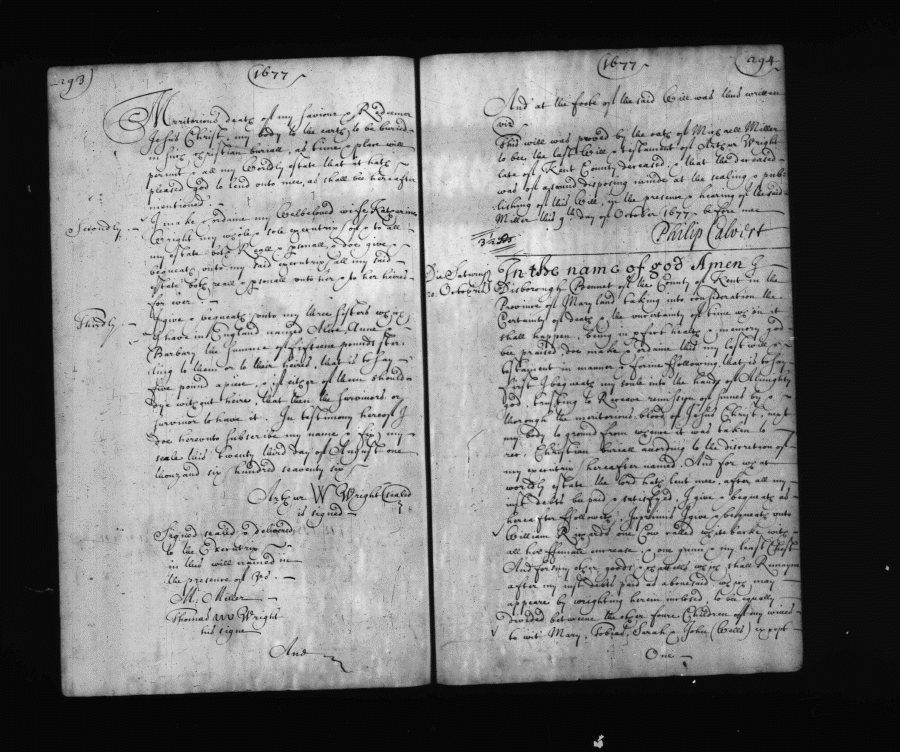 293
1677
Merritorious death of my Saviour & Redeemer
Jesus Christ, my body to the earth to be buried
in such Christian buriall, as time & place will
permit & all my Worldly estate that it hath
pleased god to lend unto mee, as shall bee hereafter
mentioned
Secondly
I make & ordaine my Welbeloved wife Katharine
Wright my whole & sole executrix of & to all
my estate both Reall & psonall, & doe give &
bequeath unto my said executrix all my said
estate both reall & psonall unto her & to her heires
for ever
Thirdly
I give & bequeath unto my three Sisters wch
I have in England named Alice, Anne &
Barbary the summe of fifteene pounds ster
ling to them or to their heires, that is to say
five pound apiece, & if either of them should
dye without heires, that then the survivors or
survivor to have it. In testimony hereof I
doe hereunto subscribe my name & fix my
seale this twenty third day of August one
thouzand six hundred seaventy six
Arthur W Wright (sealed
is signed
Signed sealed & delivered
to the Executrix
in this will named in
the presence of us.
M. Miller
Thomas W Wright
his signe
And
1677
294
And at the foote of the said Will was thus written
viz
This will was proved by the oath of Michaell Miller
to bee the last Will & testament of Arthur Wright
late of Kent County deceased, & that the deceased
was of a sound disposing minde at the sealing & pub
lishing of this Will, in the presence & hearing of the said
Miller this 9th day of October 1677 before mee
Philip Calvert
Die Saturni
20 Octobris
In the name of god Amen I
Disborough Bennet of the County of Kent in the
Province of Maryland taking into consideration the
Certainty of death & the uncertainty of time when it
shall happen, being in pfect health & memory god
bee praised doe make & ordaine this my last will &
testament in manner & forme following, that is to say
First I bequeath my soule into the hands of Almighty
god, trusting to Receave remission of sinnes by &
thorough the meritorious blood of Jesus Christ, next
my body to ground from whence it was taken to
rec. Christian buriall according to the discretion of
my executrix hereafter named. And for what
worldly estate the lord hath lent mee, after all my
just debts bee pd & satisfyed, I give & bequeath as
hereafter followeth, Inprimis I give & bequeath unto
William one Cow called white backe with
all her female increase & one gunn & my least Chist
And for my other goods & chattells wch shall Remayne
after my just debts paid as abovesaid, wch may
appeare by wrighting herein inclosed, to be equally
divided betweene the other foure Children of my wives
to wit Mary, Tobias, Sarah & John (Wells) except
One